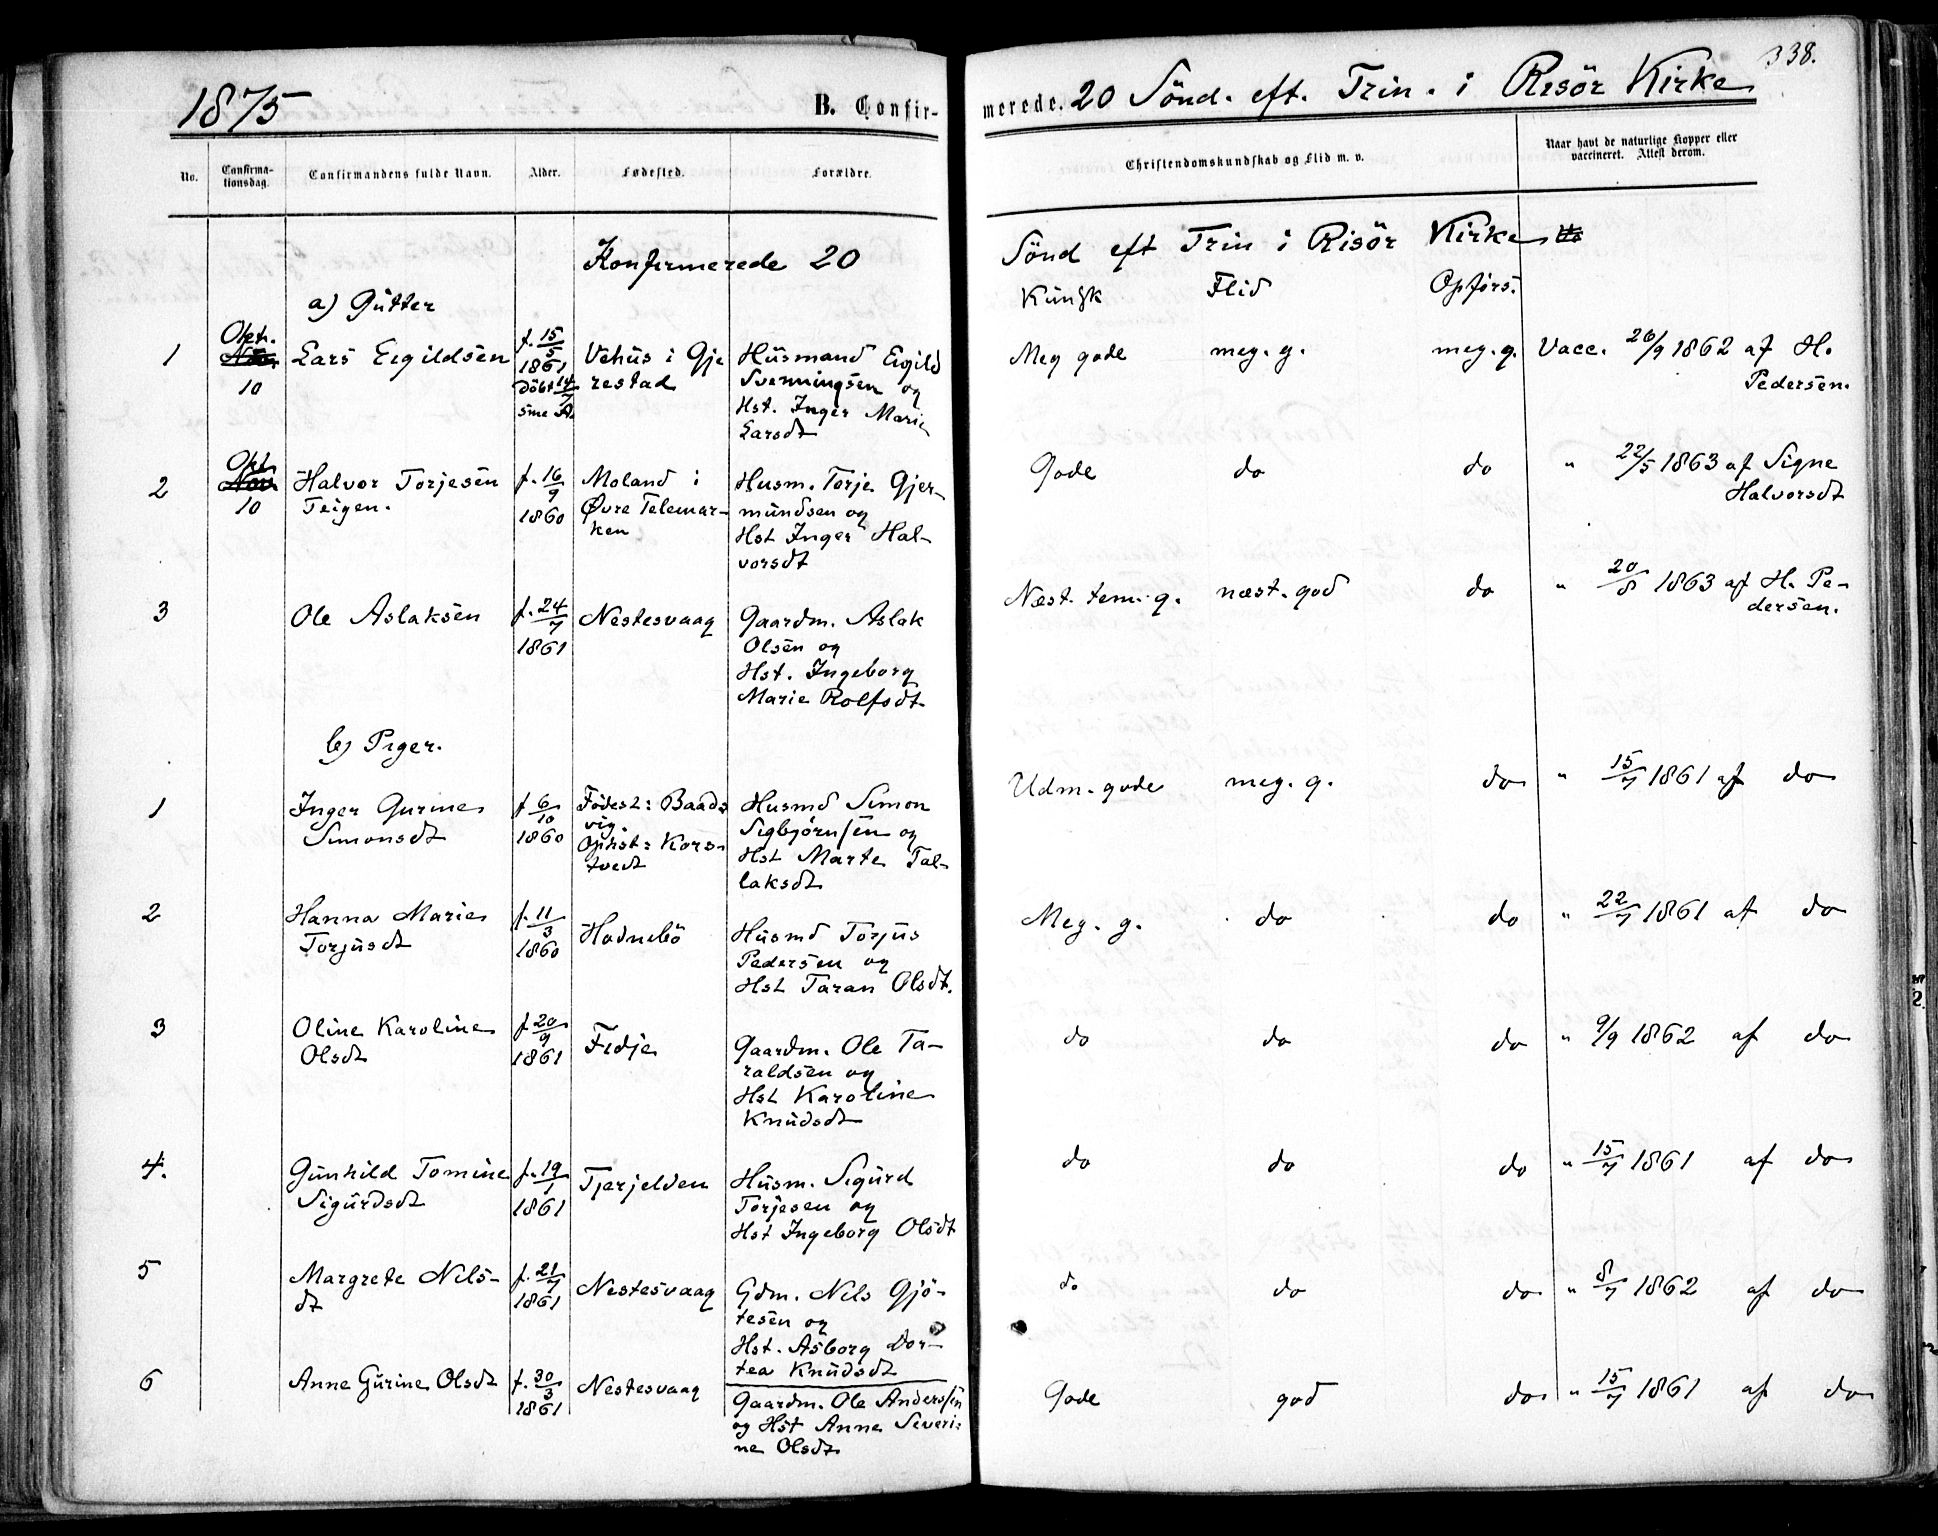 338.
1875 B. Confir- merede. 20 Sönd. eft. Trin. i Risör Kirke
No. Confirma-tionsdag. Confirmandens fulde Navn. Alder. Fødested. Forældre. Christendomskundskab og Flid m. v. Naar havt de naturlige Kopper eller vaccineret. Attest derom.
Konfirmerede 20 Sönd eft Trin i Risör Kirke
a) Gutter Kunsk Flid Opförs.
1 Okt. 10 Lars Eigildsen f. 15/5 1861 Vehus i Gje Husmand Eigild Meg gode meg. g. meg. g. Vacc. 26/9 1862 af H.
Döbt 14/7 restad Svenningsen og Pedersen.
sme A. Hst. Inger Marie
Larsdt
2 Okt. Nov. 10 Halvor Torjesen f. 16/9 Moland i Husm. Torje Gjer- Gode do do " 22/5 1863 af Signe
Teigen. 1860 Øvre Telemar- mundsen og Halvorsdt
ken Hst Inger Hal-
vorsdt
3 Ole Aslaksen f. 24/7 Nestesvaag Gaardm. Aslak Næst. tem. g. næst. god do " 20/8 1863 af H. Pe-
1861 Olsen og dersen.
Hst. Ingeborg
Marie Rolfsdt.
b) Piger.
1 Inger Gurine f. 6/10 Födest: Baads Husmd Simon Udm. gode meg. g. do " 15/7 1861 af do
Simonsdt 1860 vig. Sigbjörnsen og
Ophst: Kors- Hst Marte Tal-
tvedt laksdt
2 Hanna Marie f. 11/3 Hodnebö Husmd Torjus Meg. g. do do " 22/7 1861 af do
Torjusdt 1860 Pedersen og
Hst Taran Olsdt.
3 Oline Karoline f. 20/9 Fidje Gaardm. Ole Ta- do do do " 9/9 1862 af do
Olsdt 1861 raldsen og
Hst Karoline
Knudsdt
4. Gunhild Tomine f. 19/1 Tjerjelden Husm. Sigurd do do do " 15/7 1861 af do
Sigurdsdt 1861 Torjesen og
Hst Ingeborg Olsdt
5 Margrete Nils- f. 21/7 Nestesvaag Gdm. Nils Gjö- do do do " 8/7 1862 af do
dt 1861 tesen og
Hst. Asborg Dor-
tea Knudsdt
6 Anne Gurine Olsdt f. 30/3 Nestesvaag Gaardm. Ole Anderssen Gode god do " 15/7 1861 af do
1861 og Hst Anne Severi-
ne Olsdt